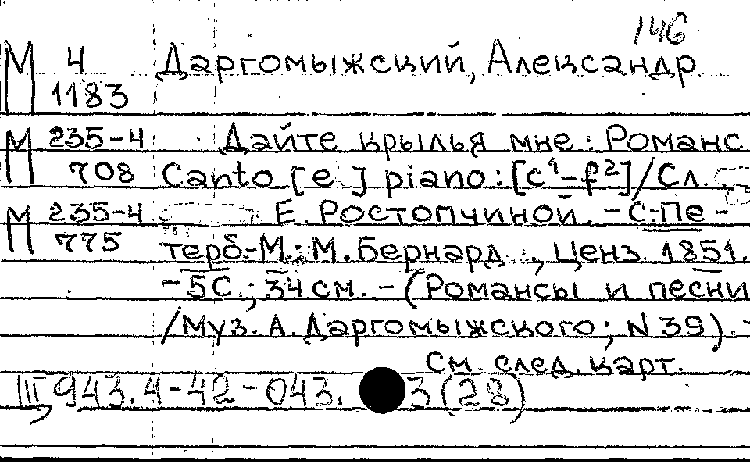 146
М 4 Даргомыжский, Александр
1183
М 235-4 Дайте крылья мне: Романс
708 Canto [e ] piano: [c¹-f²]/Сл.
М 235-4 Е. Ростопчиной. - С-Пе-
775 терб.-М.: М. Бернард , Ценз 1851.
- 5С.; 34 см. - (Романсы и песни
/Муз. А. Даргомыжского; N 39). -
См. след. карт.
III 943.4-42-043. 3(28)